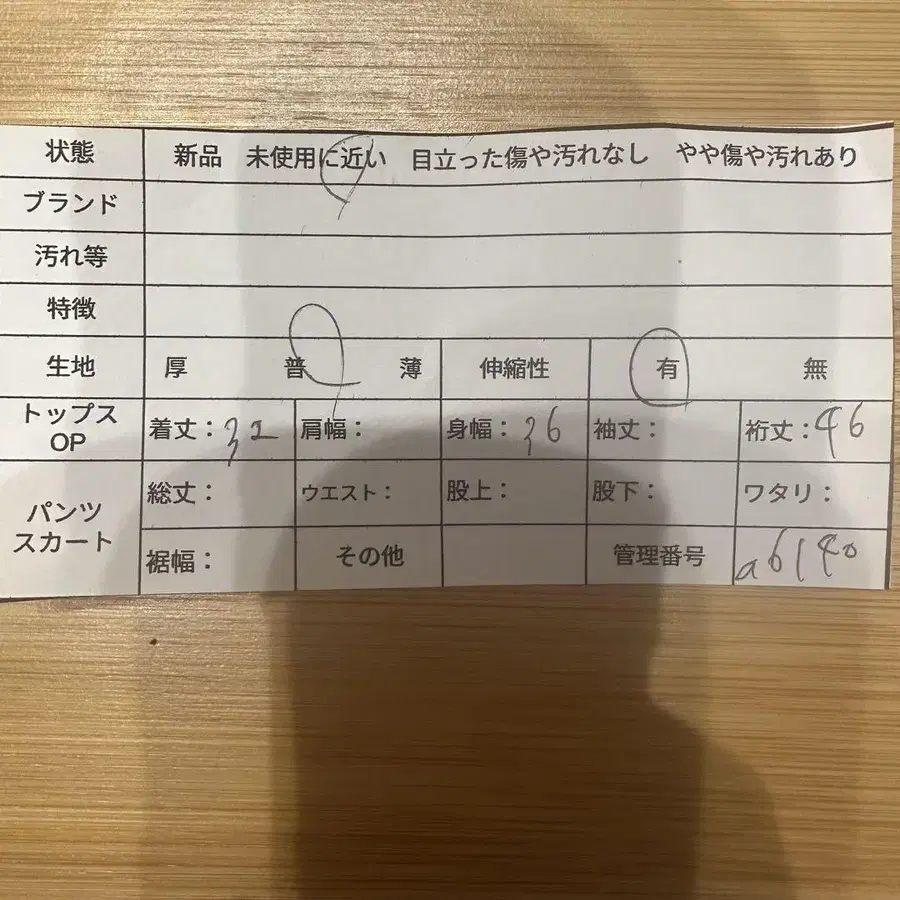 状態 新品 未使用に近い 目立った傷や汚れなし やや傷や汚れあり
ブランド
汚れ等
特徴
生地 厚 普 薄 伸縮性 有 無
トップス
OP
着丈：32 肩幅： 身幅：36 袖丈： 裄丈：46
パンツ
スカート
総丈： ウエスト： 股上： 股下： ワタリ：
裾幅： その他 管理番号 a6140